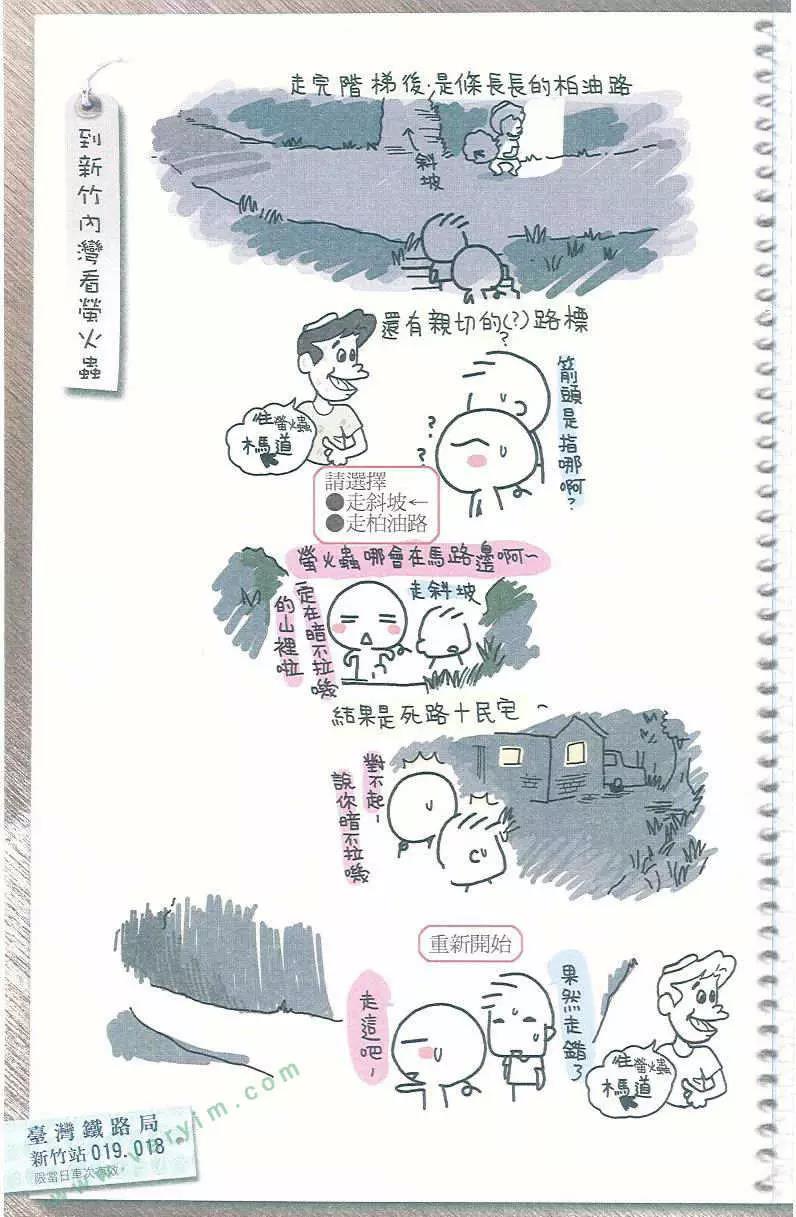 到新竹內灣看螢火蟲
走完階梯後.是條長長的柏油路
斜坡
還有親切的(?)路標
?
?
?
箭頭是指哪啊?
往螢火蟲
木馬道
請選擇
●走斜坡←
●走柏油路
螢火蟲哪會在馬路邊啊~
一定在暗不拉嘰
的山裡啦
走斜坡
結果是死路+民宅~
對不起~
說你暗不拉嘰
重新開始
走這吧~
果然走錯了
往螢火蟲
木馬道
臺灣鐵路局
新竹站 019.018
限當日車次有效